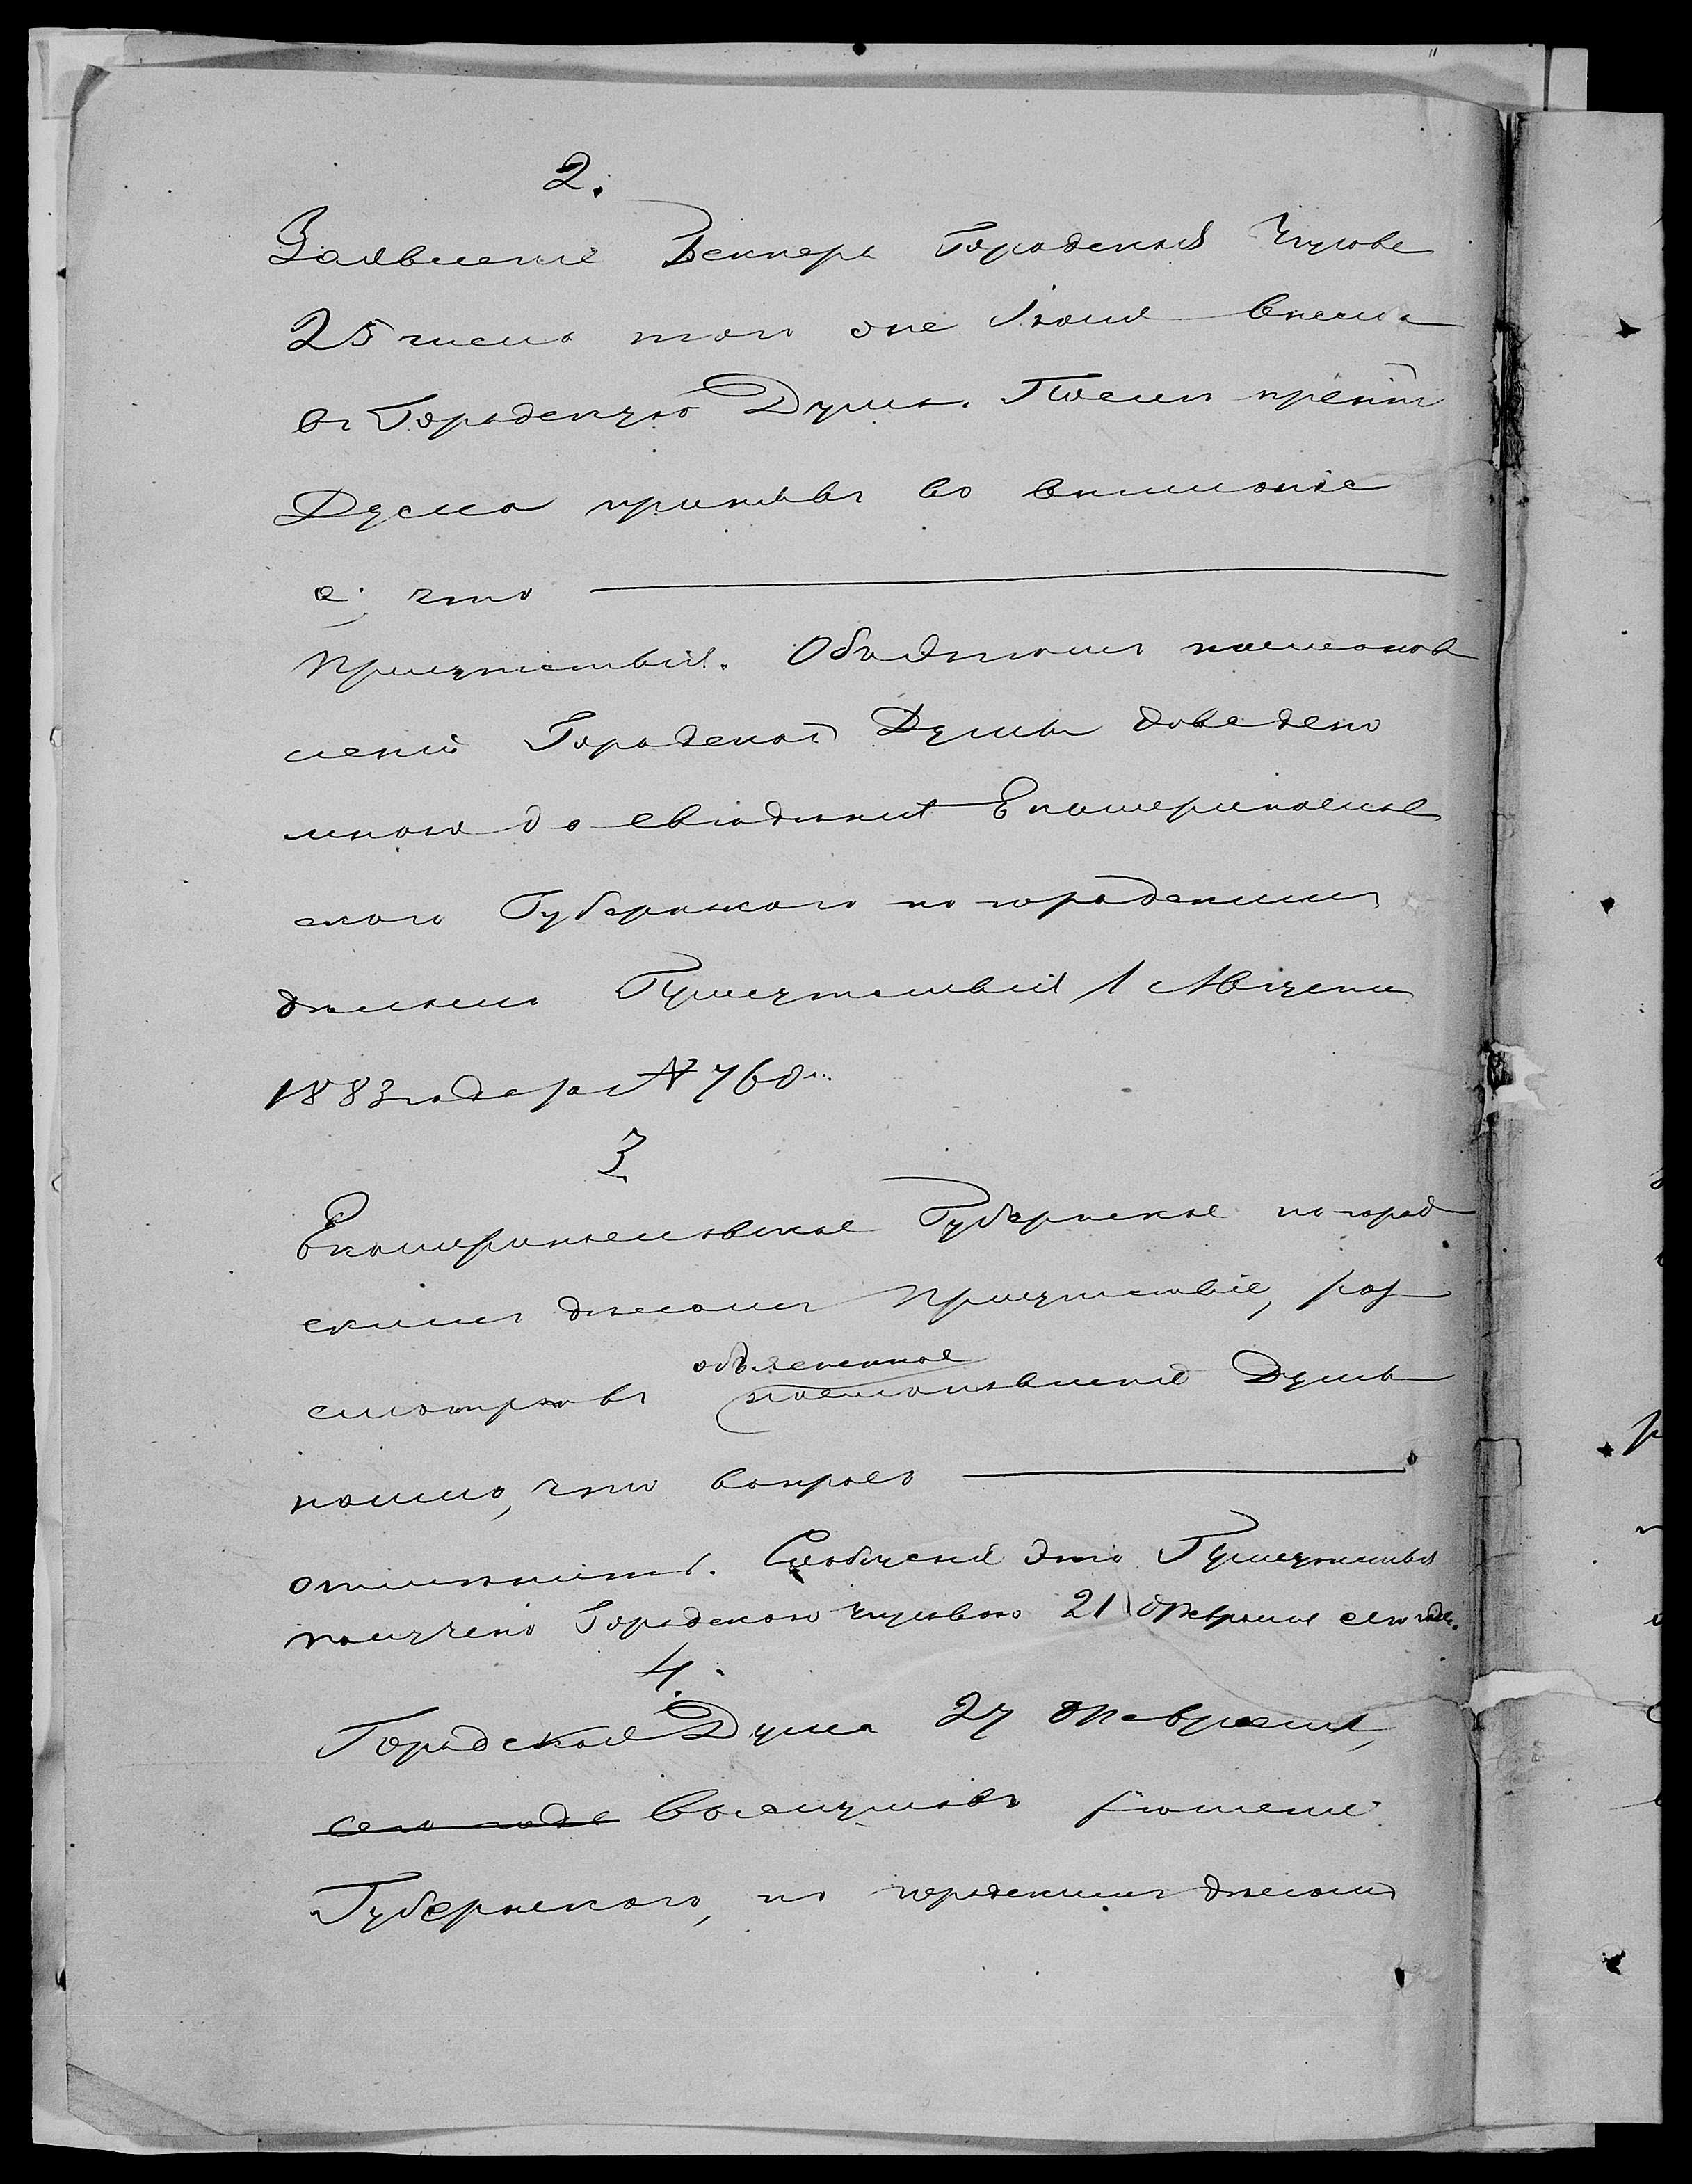 2.
Заявленіе Беккера Городская Управа
25 числа того же Іюля внесла
въ Городскую Думу. Послѣ преній
Дума принявъ во вниманіе
а; что
присутствія. Объ этомъ постанов
леніи Городской Думы доведено
мною до свѣдѣнія Екатеринослав
скаго Губернскаго по городскимъ
дѣламъ Присутствія 1 Августа
1883 года за № 760
3
Екатеринославское Губернское по город
скимъ дѣламъ Присутствіе, раз
смотрѣвъ объясненное постановленіе Думы
нашло, что вопросъ
отмѣнить. Сообщеніе это Присутствія
получено Городскою Управою 21 Февраля сего года.
4.
Городская Дума 27 Февраля,
сего года выслушавъ рѣшеніе
Губернскаго, по городскимъ дѣламъ